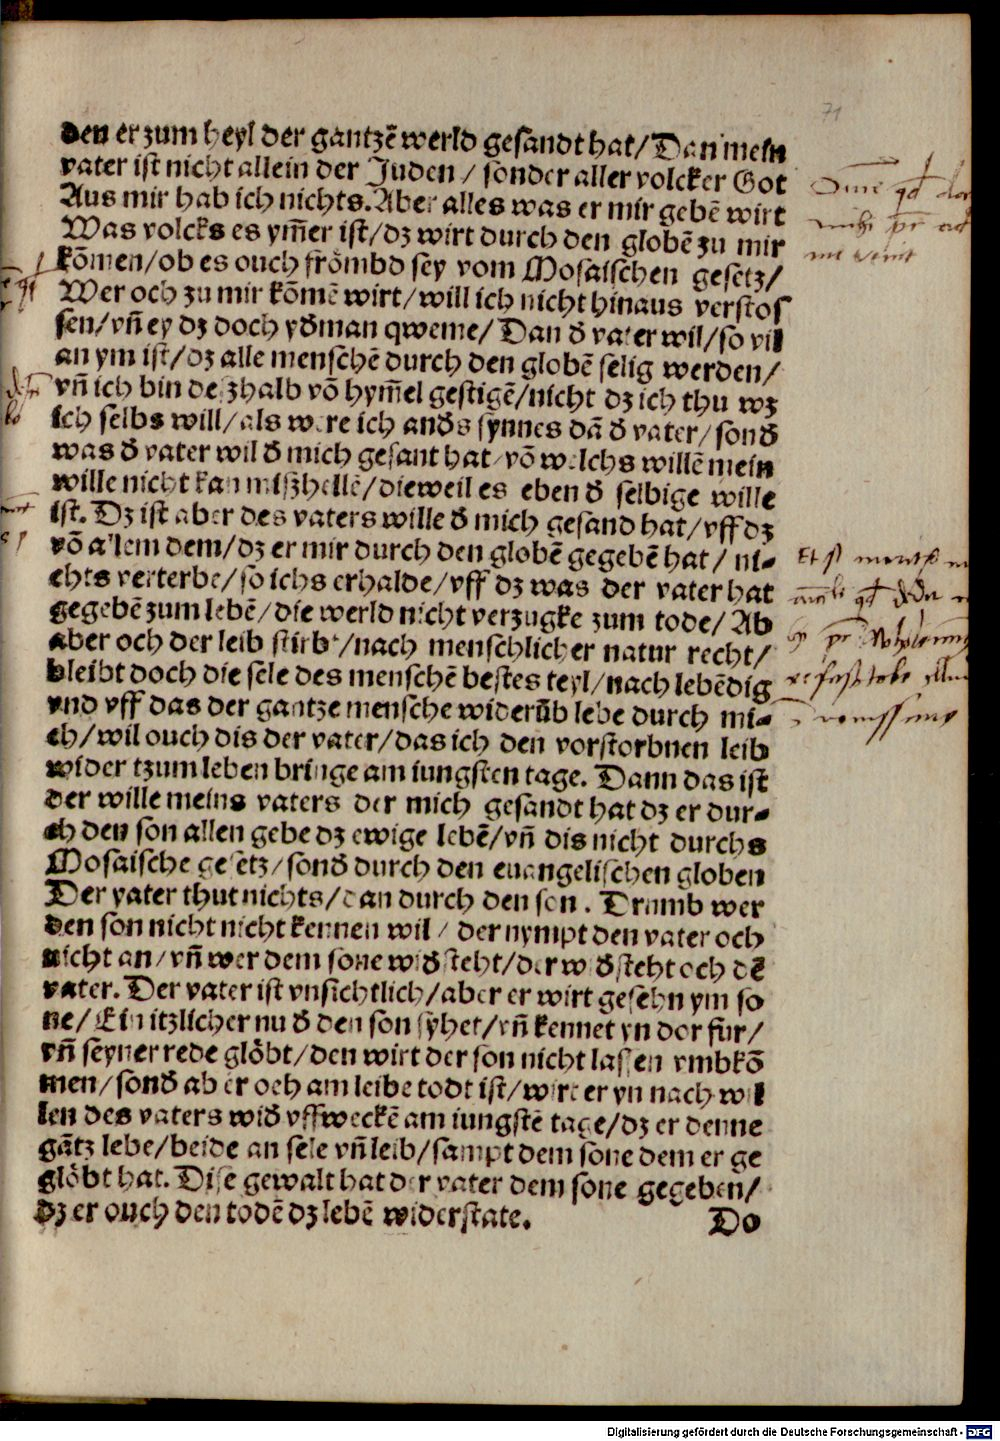 71
den er zum heyl der gantzē werld gesandt hat/ Dan mein
vater ist nicht allein der Juden / sonder aller volcker Got
Aus mir hab ich nichts. Aber alles was er mir gebē wirt
Was volcks es ym̄er ist/ dz wirt durch den globē zu mir
kōmen/ ob es ouch frömbd sey vom Mosaischen gesetz/
Wer och zu mir kōmē wirt/ will ich nicht hinaus verstos
sen/ vñ ey dz doch yðman qweme/ Dan ð vater wil/ so vil
an ym ist/ dz alle menschē durch den globē selig werden/
vñ ich bin deszhalb vō hym̄el gestigē/ nicht dz ich thu wz
ich selbs will/ als were ich anðs synnes dā ð vater/ sonð
was ð vater wil ð mich gesant hat/ vō welchs willē mein
wille nicht kan miszhellē/ dieweil es eben ð selbige wille
ist. Dz ist aber des vaters wille ð mich gesand hat/ vff dz
vō allem dem/ dz er mir durch den globē gegebē hat / ni-
chts verterbe/ so ichs erhalde/ vff dz was der vater hat
gegebē zum lebē/ die werld nicht verzugke zum tode/ Ab
aber och der leib stirbt/ nach menschlicher natur recht/
bleibt doch die sele des menschē bestes teyl/ nach lebēdig
vnd vff das der gantze mensche widerūb lebe durch mi-
ch/ wil ouch dis der vater/ das ich den vorstorbnen leib
wider tzum leben bringe am iungsten tage. Dann das ist
der wille meins vaters der mich gesandt hat dz er dur-
ch den son allen gebe dz ewige lebē/ vñ dis nicht durchs
Mosaische gesetz/ sonð durch den euangelischen globen
Der vater thut nichts/ dan durch den son . Drumb wer
den son nicht nicht kennen wil / der nympt den vater och
nicht an/ vñ wer dem sone wiðsteht/ der wiðsteht och dē
vater. Der vater ist vnsichtlich/ aber er wirt gesehn ym so
ne/ Ein itzlicher nu ð den son syhet/ vñ kennet yn dor für/
vñ seyner rede glöbt/ den wirt der son nicht lassen vmbkō
men/ sonð ab er och am leibe todt ist/ wirt er yn nach wil
len des vaters wið vffweckē am iungstē tage/ dz er denne
gātz lebe/ beide an sele vñ leib/ sampt dem sone dem er ge
glöbt hat. Dise gewalt hat der vater dem sone gegeben/
dz er ouch den todē dz lebē widerstate.
Do
Digitalisierung gefördert durch die Deutsche Forschungsgemeinschaft - DFG